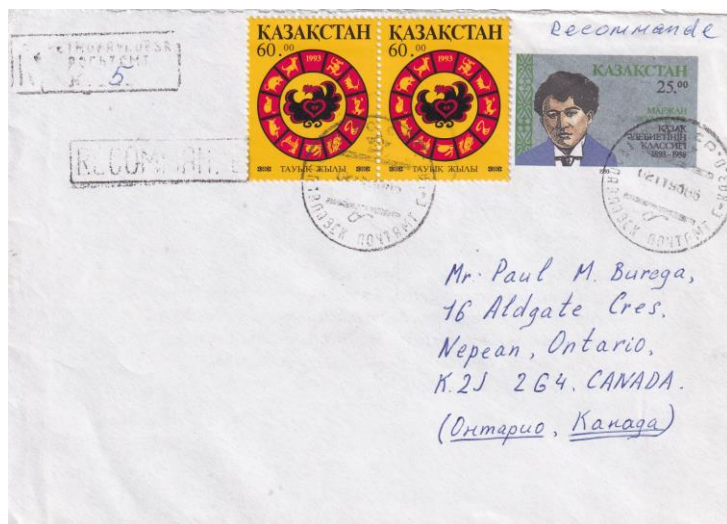 Recommande
PETROPAVLOVSK
5
RECOMMAN
ҚАЗАҚСТАН
60.00
1993
ТАУЫҚ ЖЫЛЫ
ҚАЗАҚСТАН
60.00
1993
ТАУЫҚ ЖЫЛЫ
ҚАЗАҚСТАН
25.00
МАҒЖАН
ҚАЗАҚ
ӘДЕБИЕТІНІҢ
КЛАССИГІ
ПОЧТАМТ
ПОЧТАМТ
Mr. Paul M. Burega,
16 Aldgate Cres.
Nepean, Ontario,
K.2J 2G4. CANADA.
(Онтарио, Канада)